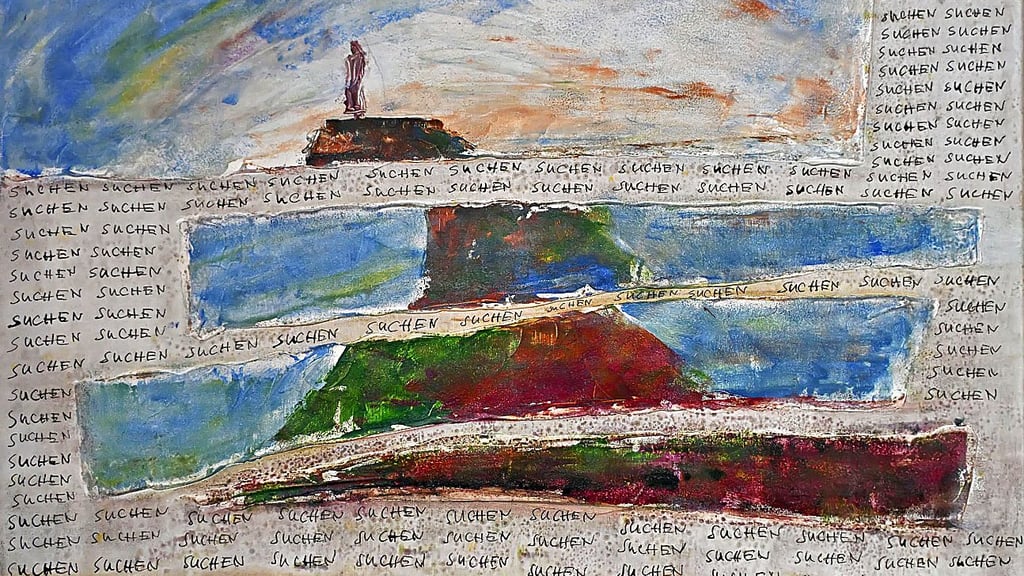 SUCHEN SUCHEN
SUCHEN SUCHEN
SUCHEN SUCHEN
SUCHEN SUCHEN
SUCHEN SUCHEN
SUCHEN SUCHEN
SUCHEN SUCHEN
SUCHEN SUCHEN
SUCHEN SUCHEN
SUCHEN SUCHEN SUCHEN SUCHEN SUCHEN SUCHEN SUCHEN SUCHEN SUCHEN SUCHEN SUCHEN SUCHEN
SUCHEN SUCHEN SUCHEN SUCHEN SUCHEN SUCHEN SUCHEN SUCHEN SUCHEN SUCHEN SUCHEN SUCHEN
SUCHEN SUCHEN
SUCHEN SUCHEN
SUCHEN SUCHEN
SUCHEN SUCHEN
SUCHEN SUCHEN
SUCHEN SUCHEN
SUCHEN SUCHEN SUCHEN SUCHEN SUCHEN SUCHEN SUCHEN SUCHEN SUCHEN SUCHEN SUCHEN SUCHEN
SUCHEN
SUCHEN
SUCHEN
SUCHEN
SUCHEN
SUCHEN
SUCHEN
SUCHEN
SUCHEN
SUCHEN
SUCHEN SUCHEN SUCHEN SUCHEN SUCHEN SUCHEN SUCHEN SUCHEN SUCHEN SUCHEN SUCHEN SUCHEN
SUCHEN SUCHEN SUCHEN SUCHEN SUCHEN SUCHEN SUCHEN SUCHEN SUCHEN SUCHEN SUCHEN SUCHEN
SUCHEN SUCHEN SUCHEN SUCHEN SUCHEN SUCHEN SUCHEN SUCHEN SUCHEN